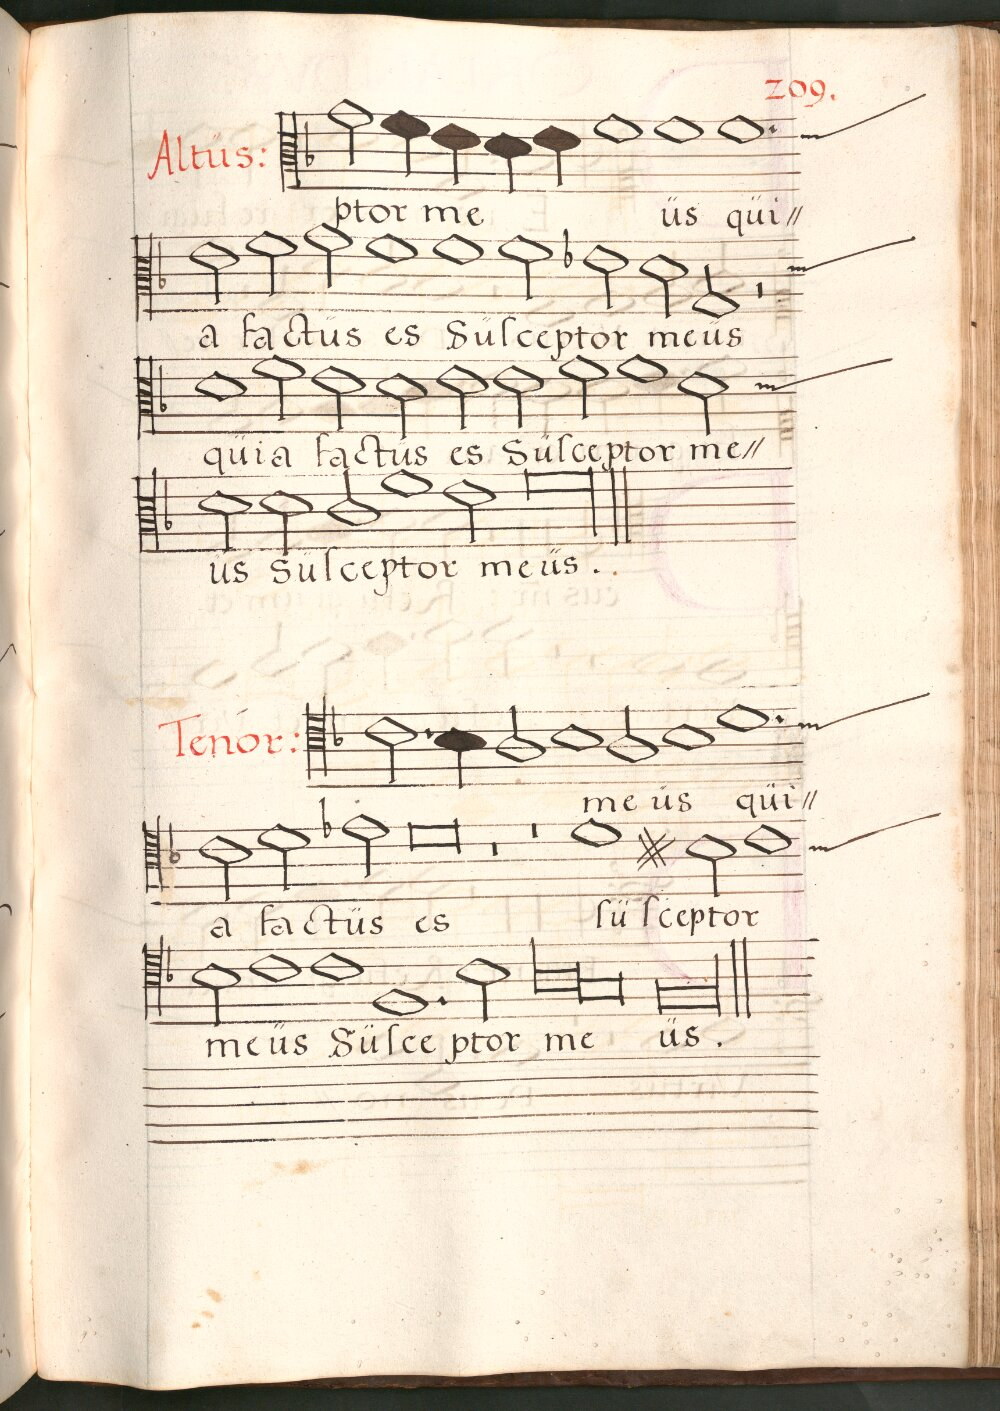 209.
Altus:
ptor me us qui//
a factus es Susceptor meus
quia factus es Susceptor me//
us Susceptor meus..
Tenor:
me us qui//
a factus es susceptor
meus Susceptor me us.